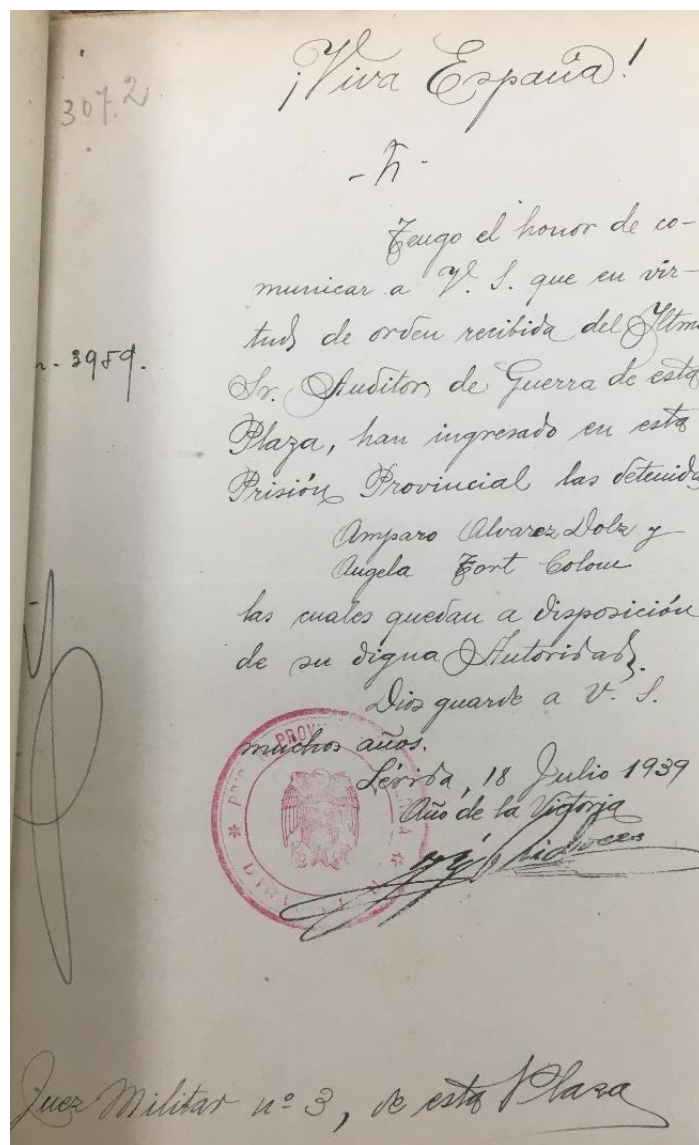 307.2
¡Viva España!
Tengo el honor de co-
municar a V. S. que en vir-
tud de orden recibida del Iltmo
Sr. Auditor de Guerra de esta
n. 3959.
Plaza, han ingresado en esta
Prisión Provincial las detenida
Amparo Alvarez Dolz y
Angela Fort Colom
las cuales quedan a disposición
de su digna Autoridad.
Dios guarde a V. S.
muchos años.
Lérida, 18 Julio 1939
Año de la Victoria
Juez Militar nº 3, de esta Plaza